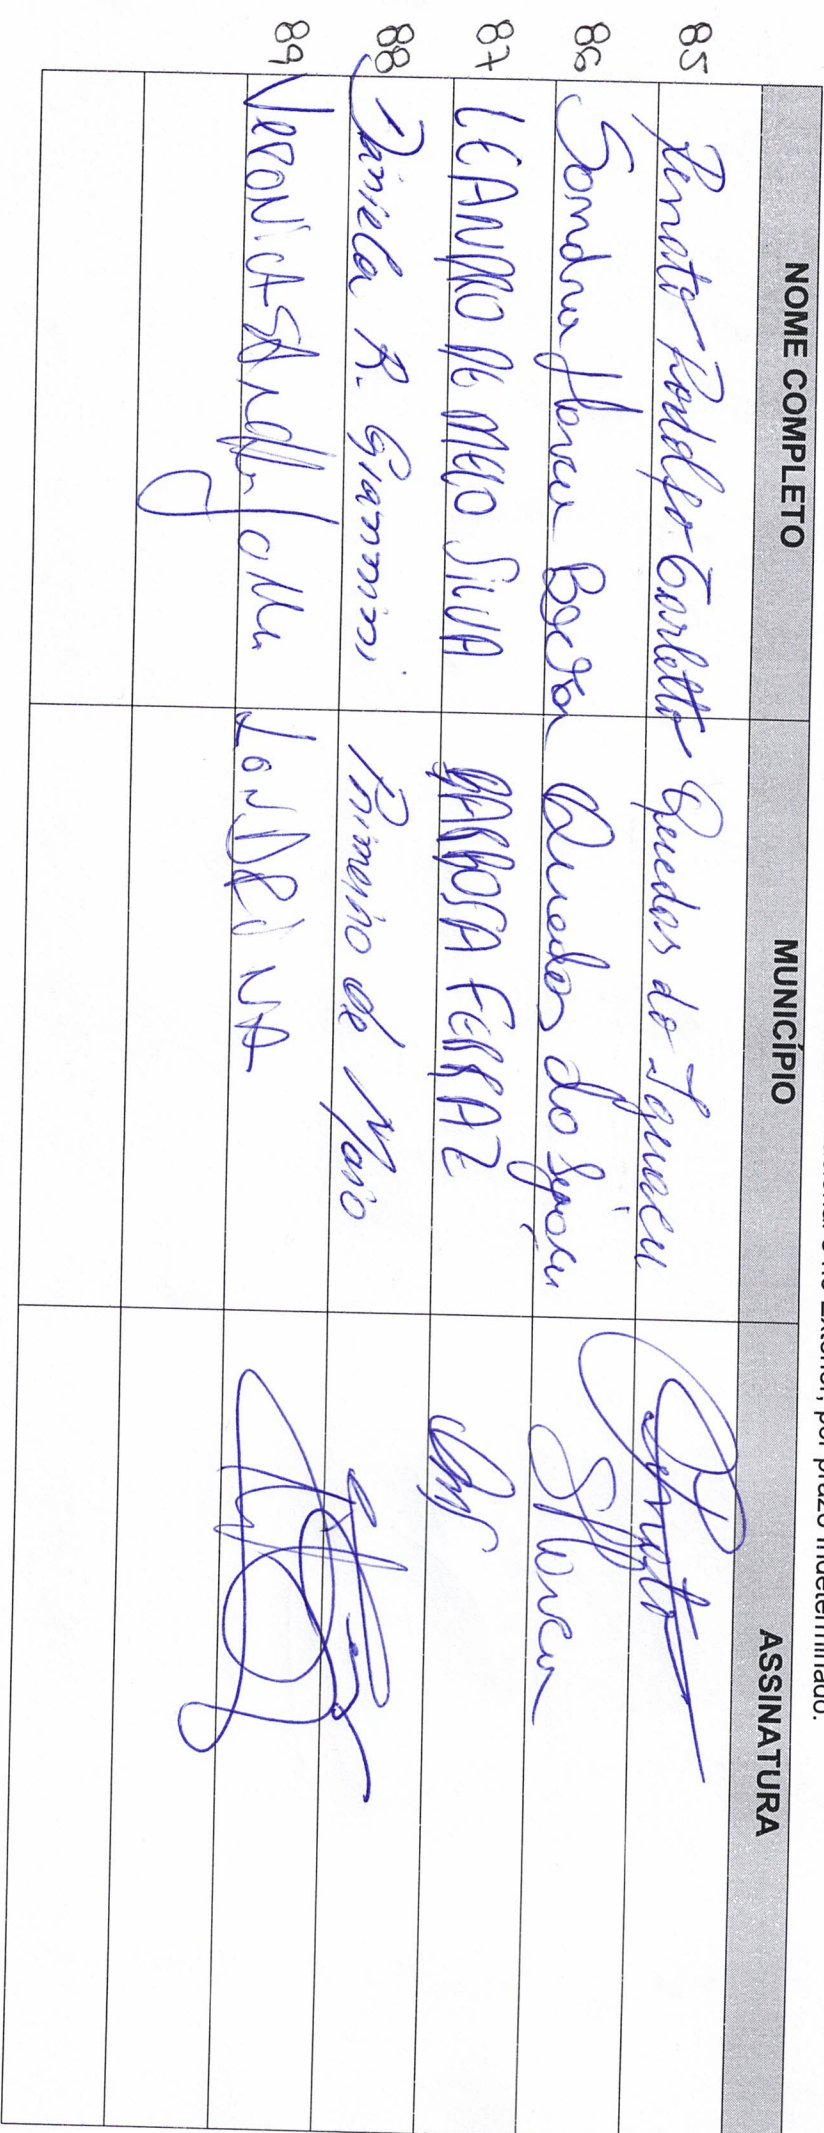 Exterior, por prazo indeterminado.
NOME COMPLETO MUNICÍPIO ASSINATURA
85 Renato Rodolfo Carletto Quedas do Iguaçu Renato
86 Sandra Quedas do Iguaçu
87 LEANDRO DE MELO SILVA BARBOSA FERRAZ
88 Daniela R. Giannini Primeiro de Maio
89 VERONICA LONDRINA